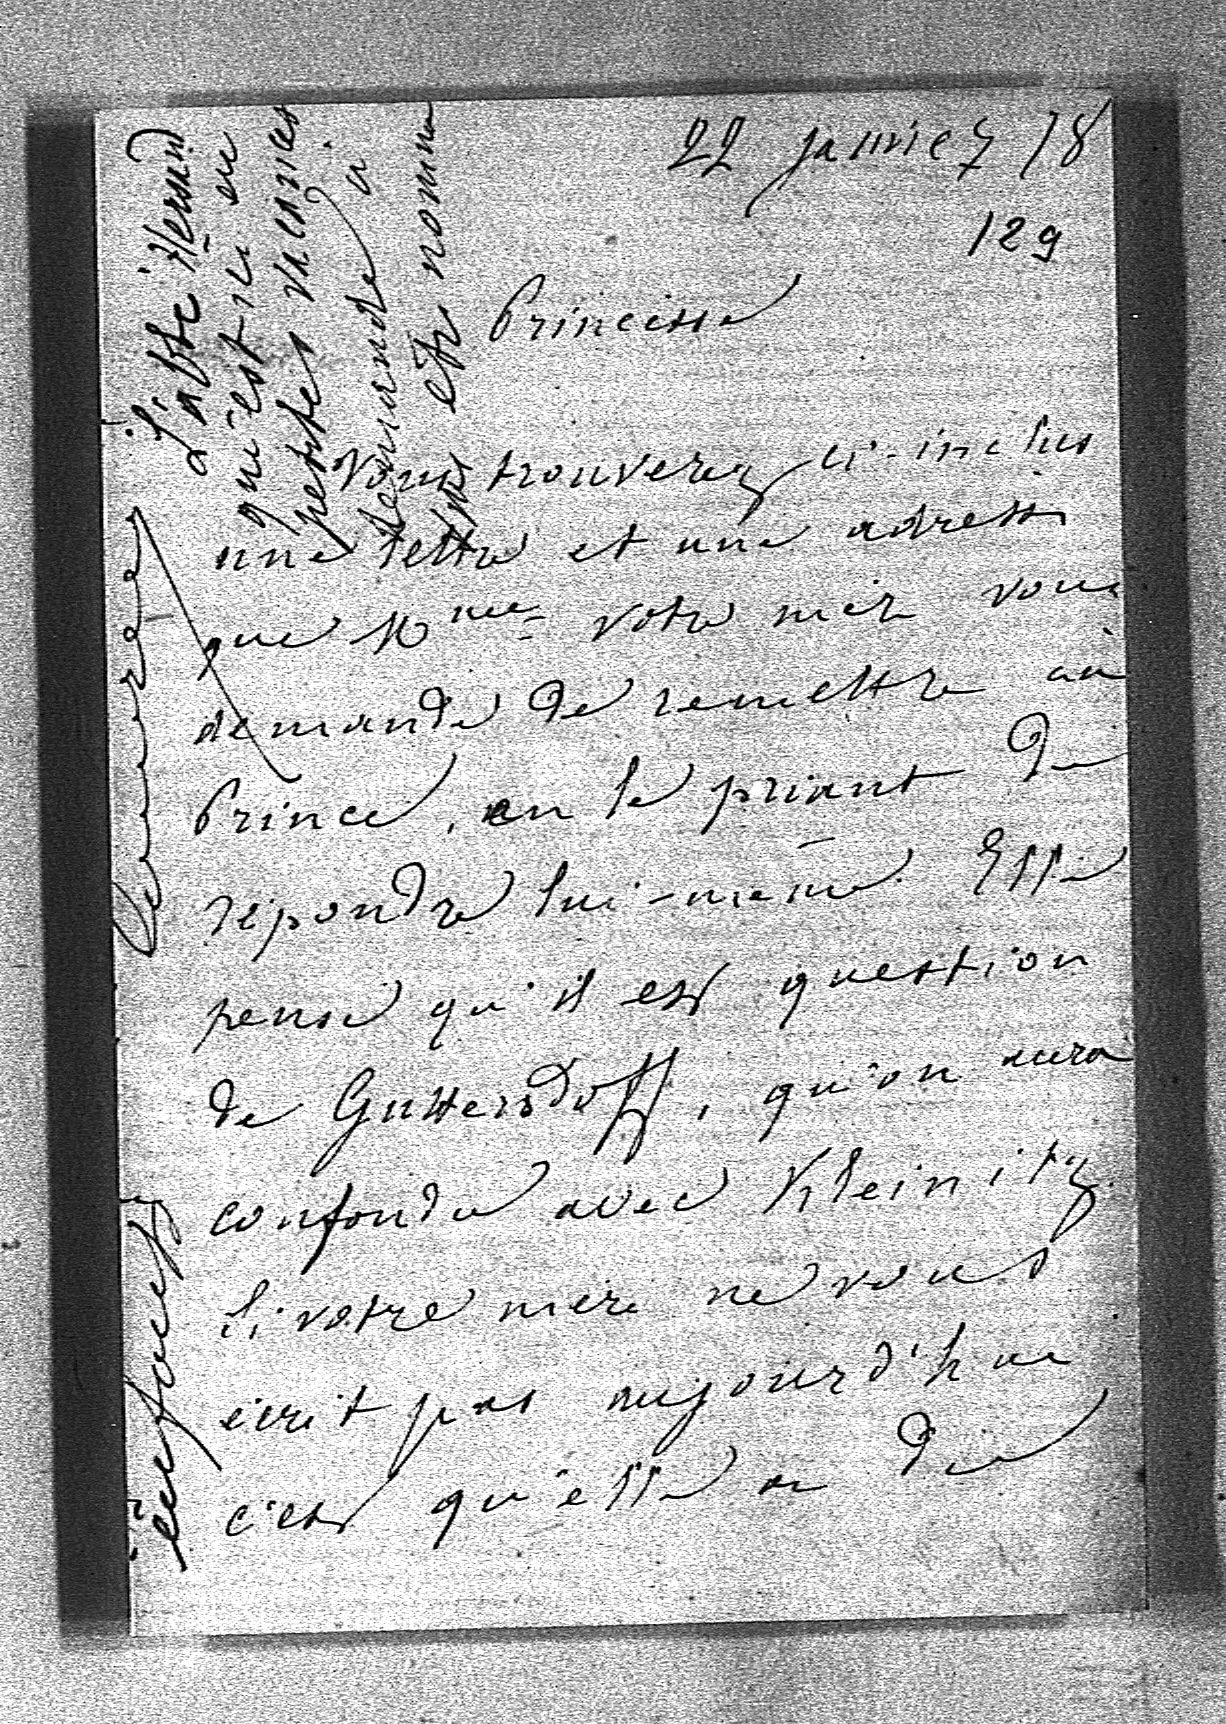 22 janvier 78
129
Princesse
Vous trouverez ci-inclus
une lettre et une adresse
que Mme votre mère vous
demande de remettre au
Prince, en le priant de
répondre lui-même. Elle
pense qu'il est question
de Guttersdoff, qu'on aura
confondu avec Kleinitz.
Si votre mère ne vous
écrit pas aujourd'hui
c'est qu'elle a du
L'abbé
qui est ici en
petites vacances
demande à
être nommé